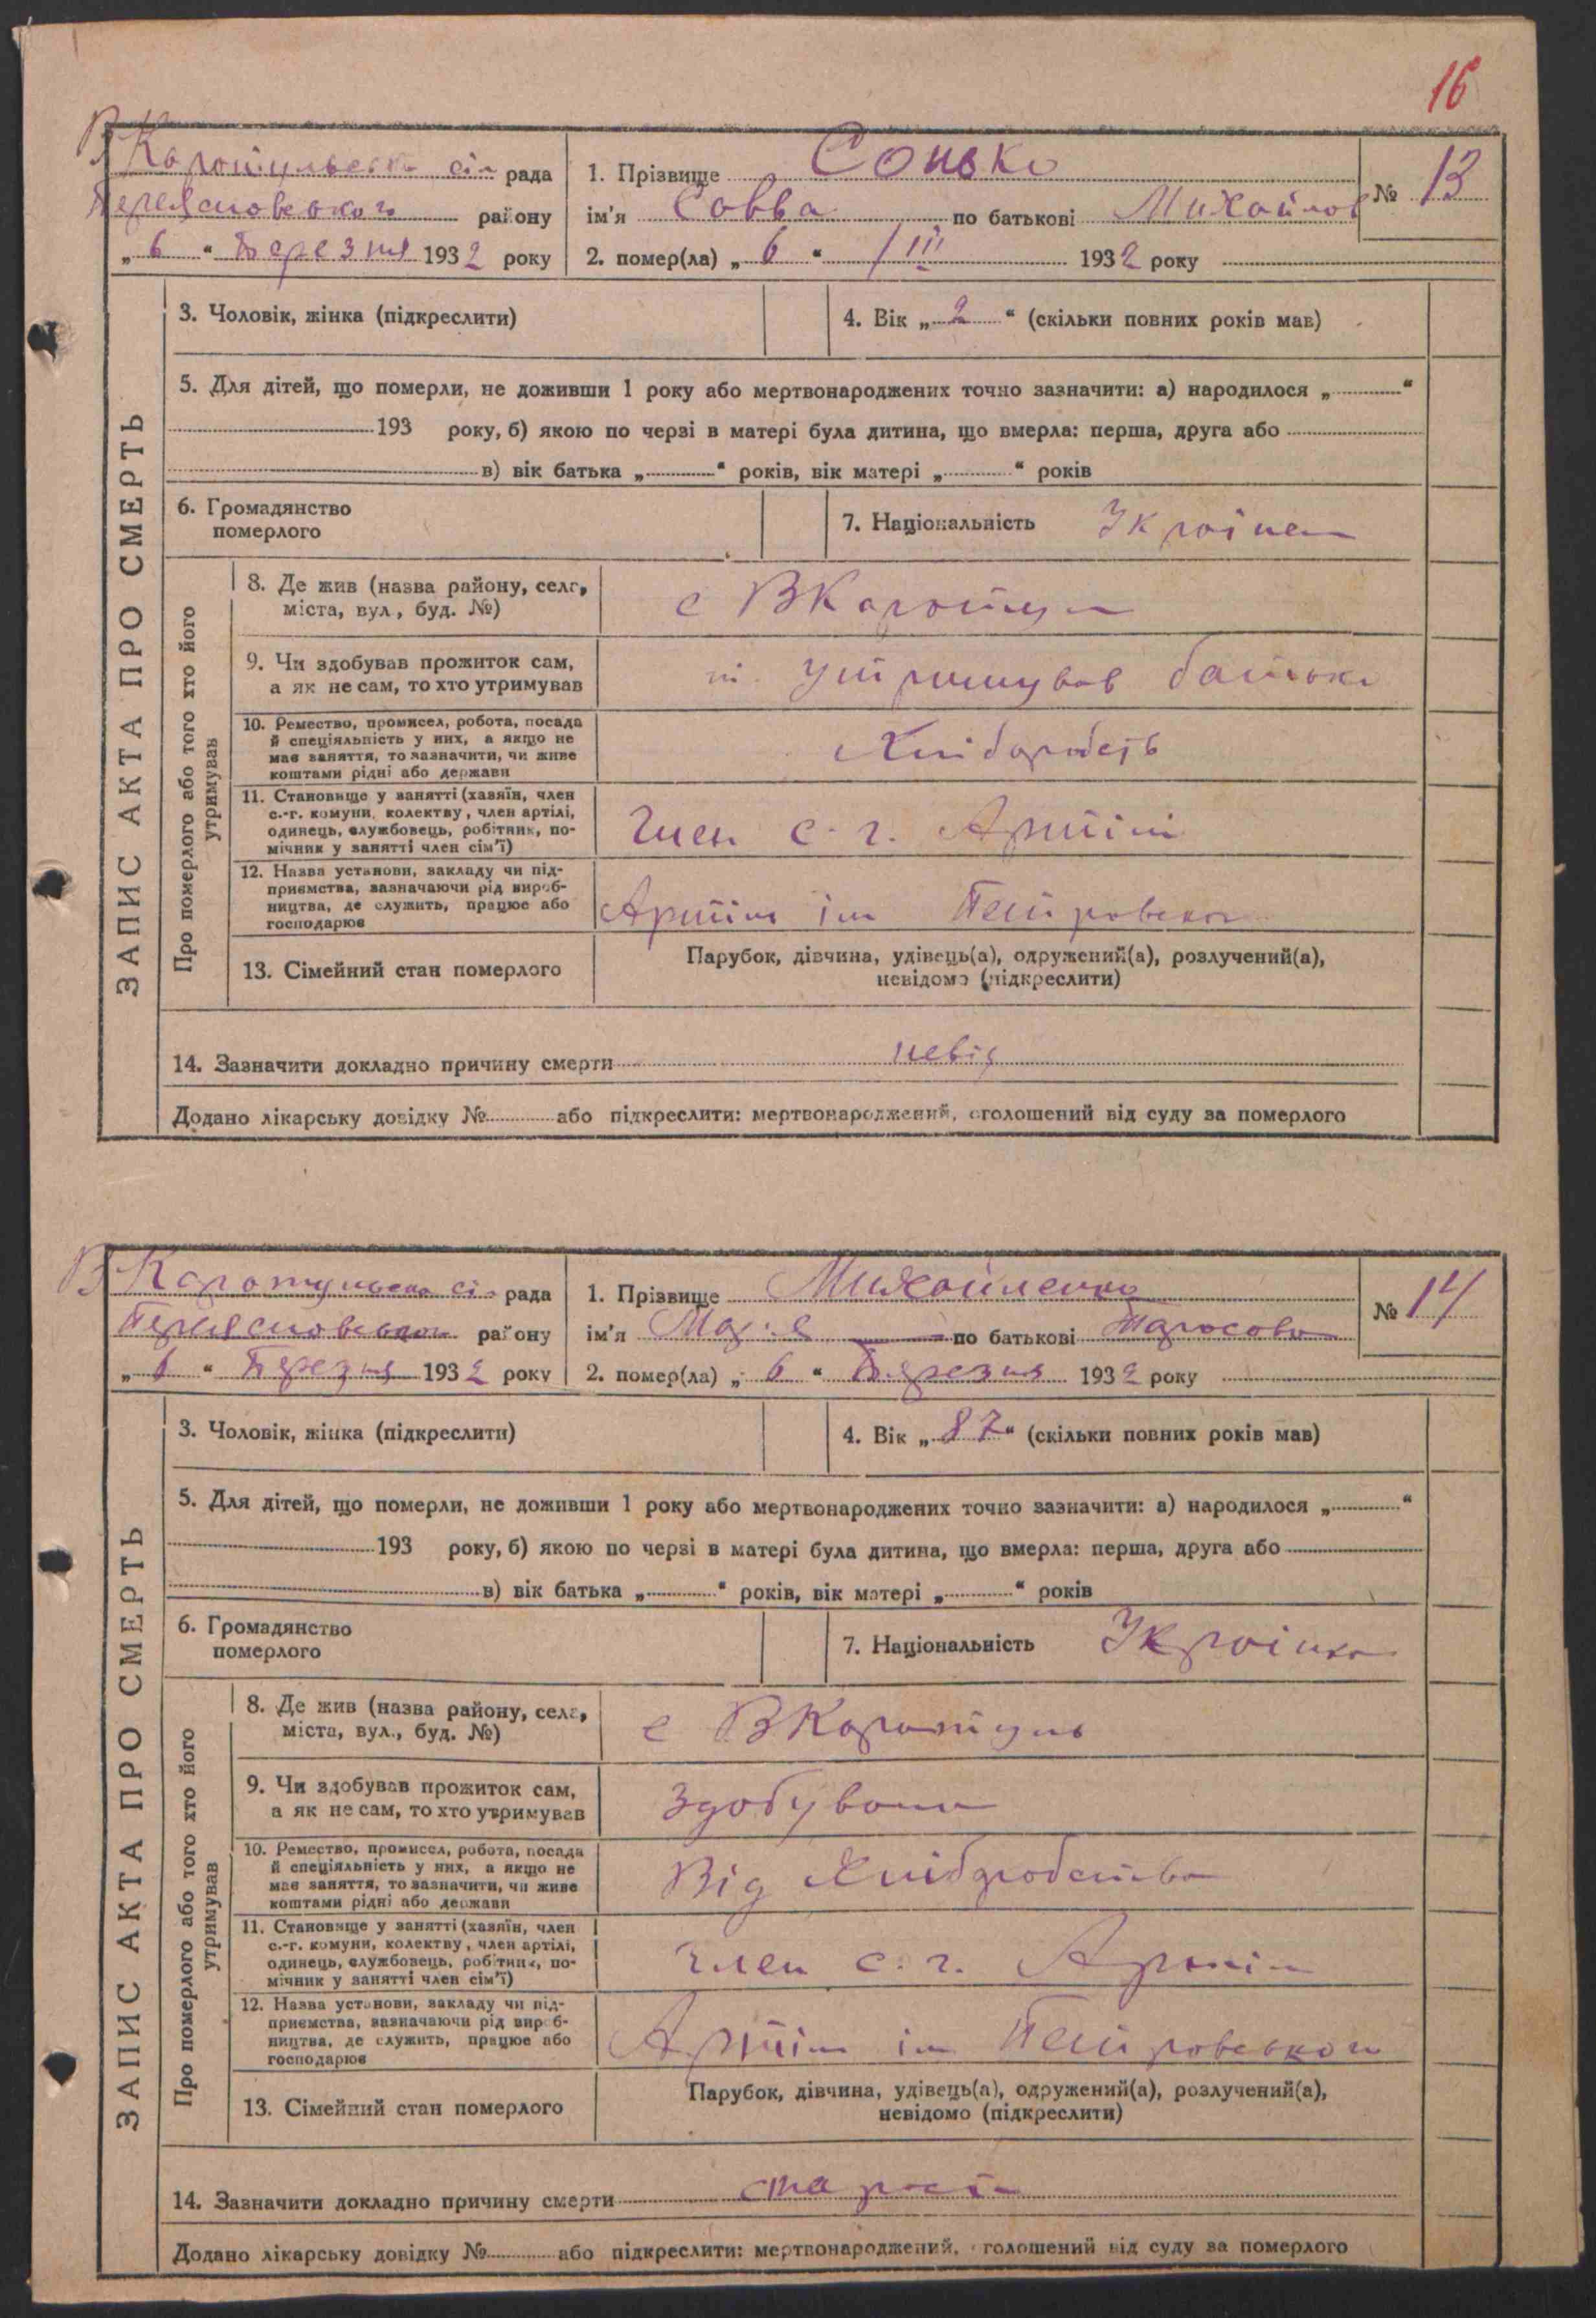 16
В Каратульська сіл рада
Переяславського району
„ 6 “ Березня 1932 року
1. Прізвище Сонько
ім'я Савва по батькові Михайлов
2. помер(ла) „ 6 “ / III 1932 року
№ 13
ЗАПИС АКТА ПРО СМЕРТЬ
3. Чоловік, жінка (підкреслити)
4. Вік „ 2 “ (скільки повних років мав)
5. Для дітей, що померли, не доживши 1 року або мертвонароджених точно зазначити: а) народилося „ “
193 року, б) якою по черзі в матері була дитина, що вмерла: перша, друга або
в) вік батька „ “ років, вік матері „ “ років
6. Громадянство
померлого
7. Національність Українец
Про померлого або того хто його
утримував
8. Де жив (назва району, села,
міста, вул., буд. №)
с ВКаратул
9. Чи здобував прожиток сам,
а як не сам, то хто утримував
утримував батько
10. Ремество, промисел, робота, посада
й спеціяльність у них, а якщо не
має заняття, то зазначити, чи живе
коштами рідні або держави
Хлібаробств
11. Становище у занятті (хазяїн, член
с.-г. комуни, колектву, член артілі,
одинець, службовець, робітник, по-
мічник у занятті член сім'ї)
Член с. г. Артілі
12. Назва установи, закладу чи під-
приємства, зазначаючи рід вироб-
ництва, де служить, працює або
господарює
Артіль ім Петровського
13. Сімейний стан померлого
Парубок, дівчина, удівець(а), одружений(а), розлучений(а),
невідомо (підкреслити)
14. Зазначити докладно причину смерти невід
Додано лікарську довідку № або підкреслити: мертвонароджений, оголошений від суду за померлого
В Каратульська сіл рада
Переяславського району
„ 6 “ Березня 1932 року
1. Прізвище Михайленко
ім'я Марія по батькові Тарасовн
2. помер(ла) „ 6 “ Березня 1932 року
№ 14
ЗАПИС АКТА ПРО СМЕРТЬ
3. Чоловік, жінка (підкреслити)
4. Вік „ 87 “ (скільки повних років мав)
5. Для дітей, що померли, не доживши 1 року або мертвонароджених точно зазначити: а) народилося „ “
193 року, б) якою по черзі в матері була дитина, що вмерла: перша, друга або
в) вік батька „ “ років, вік матері „ “ років
6. Громадянство
померлого
7. Національність Українка
Про померлого або того хто його
утримував
8. Де жив (назва району, села,
міста, вул., буд. №)
с ВКаратуль
9. Чи здобував прожиток сам,
а як не сам, то хто утримував
Здобувала
10. Ремество, промисел, робота, посада
й спеціяльність у них, а якщо не
має заняття, то зазначити, чи живе
коштами рідні або держави
Від Хлібаробства
11. Становище у занятті (хазяїн, член
с.-г. комуни, колектву, член артілі,
одинець, службовець, робітник, по-
мічник у занятті член сім'ї)
член с. г. Артіль
12. Назва установи, закладу чи під-
приємства, зазначаючи рід вироб-
ництва, де служить, працює або
господарює
Артіль ім Петровського
13. Сімейний стан померлого
Парубок, дівчина, удівець(а), одружений(а), розлучений(а),
невідомо (підкреслити)
14. Зазначити докладно причину смерти старость
Додано лікарську довідку № або підкреслити: мертвонароджений, оголошений від суду за померлого